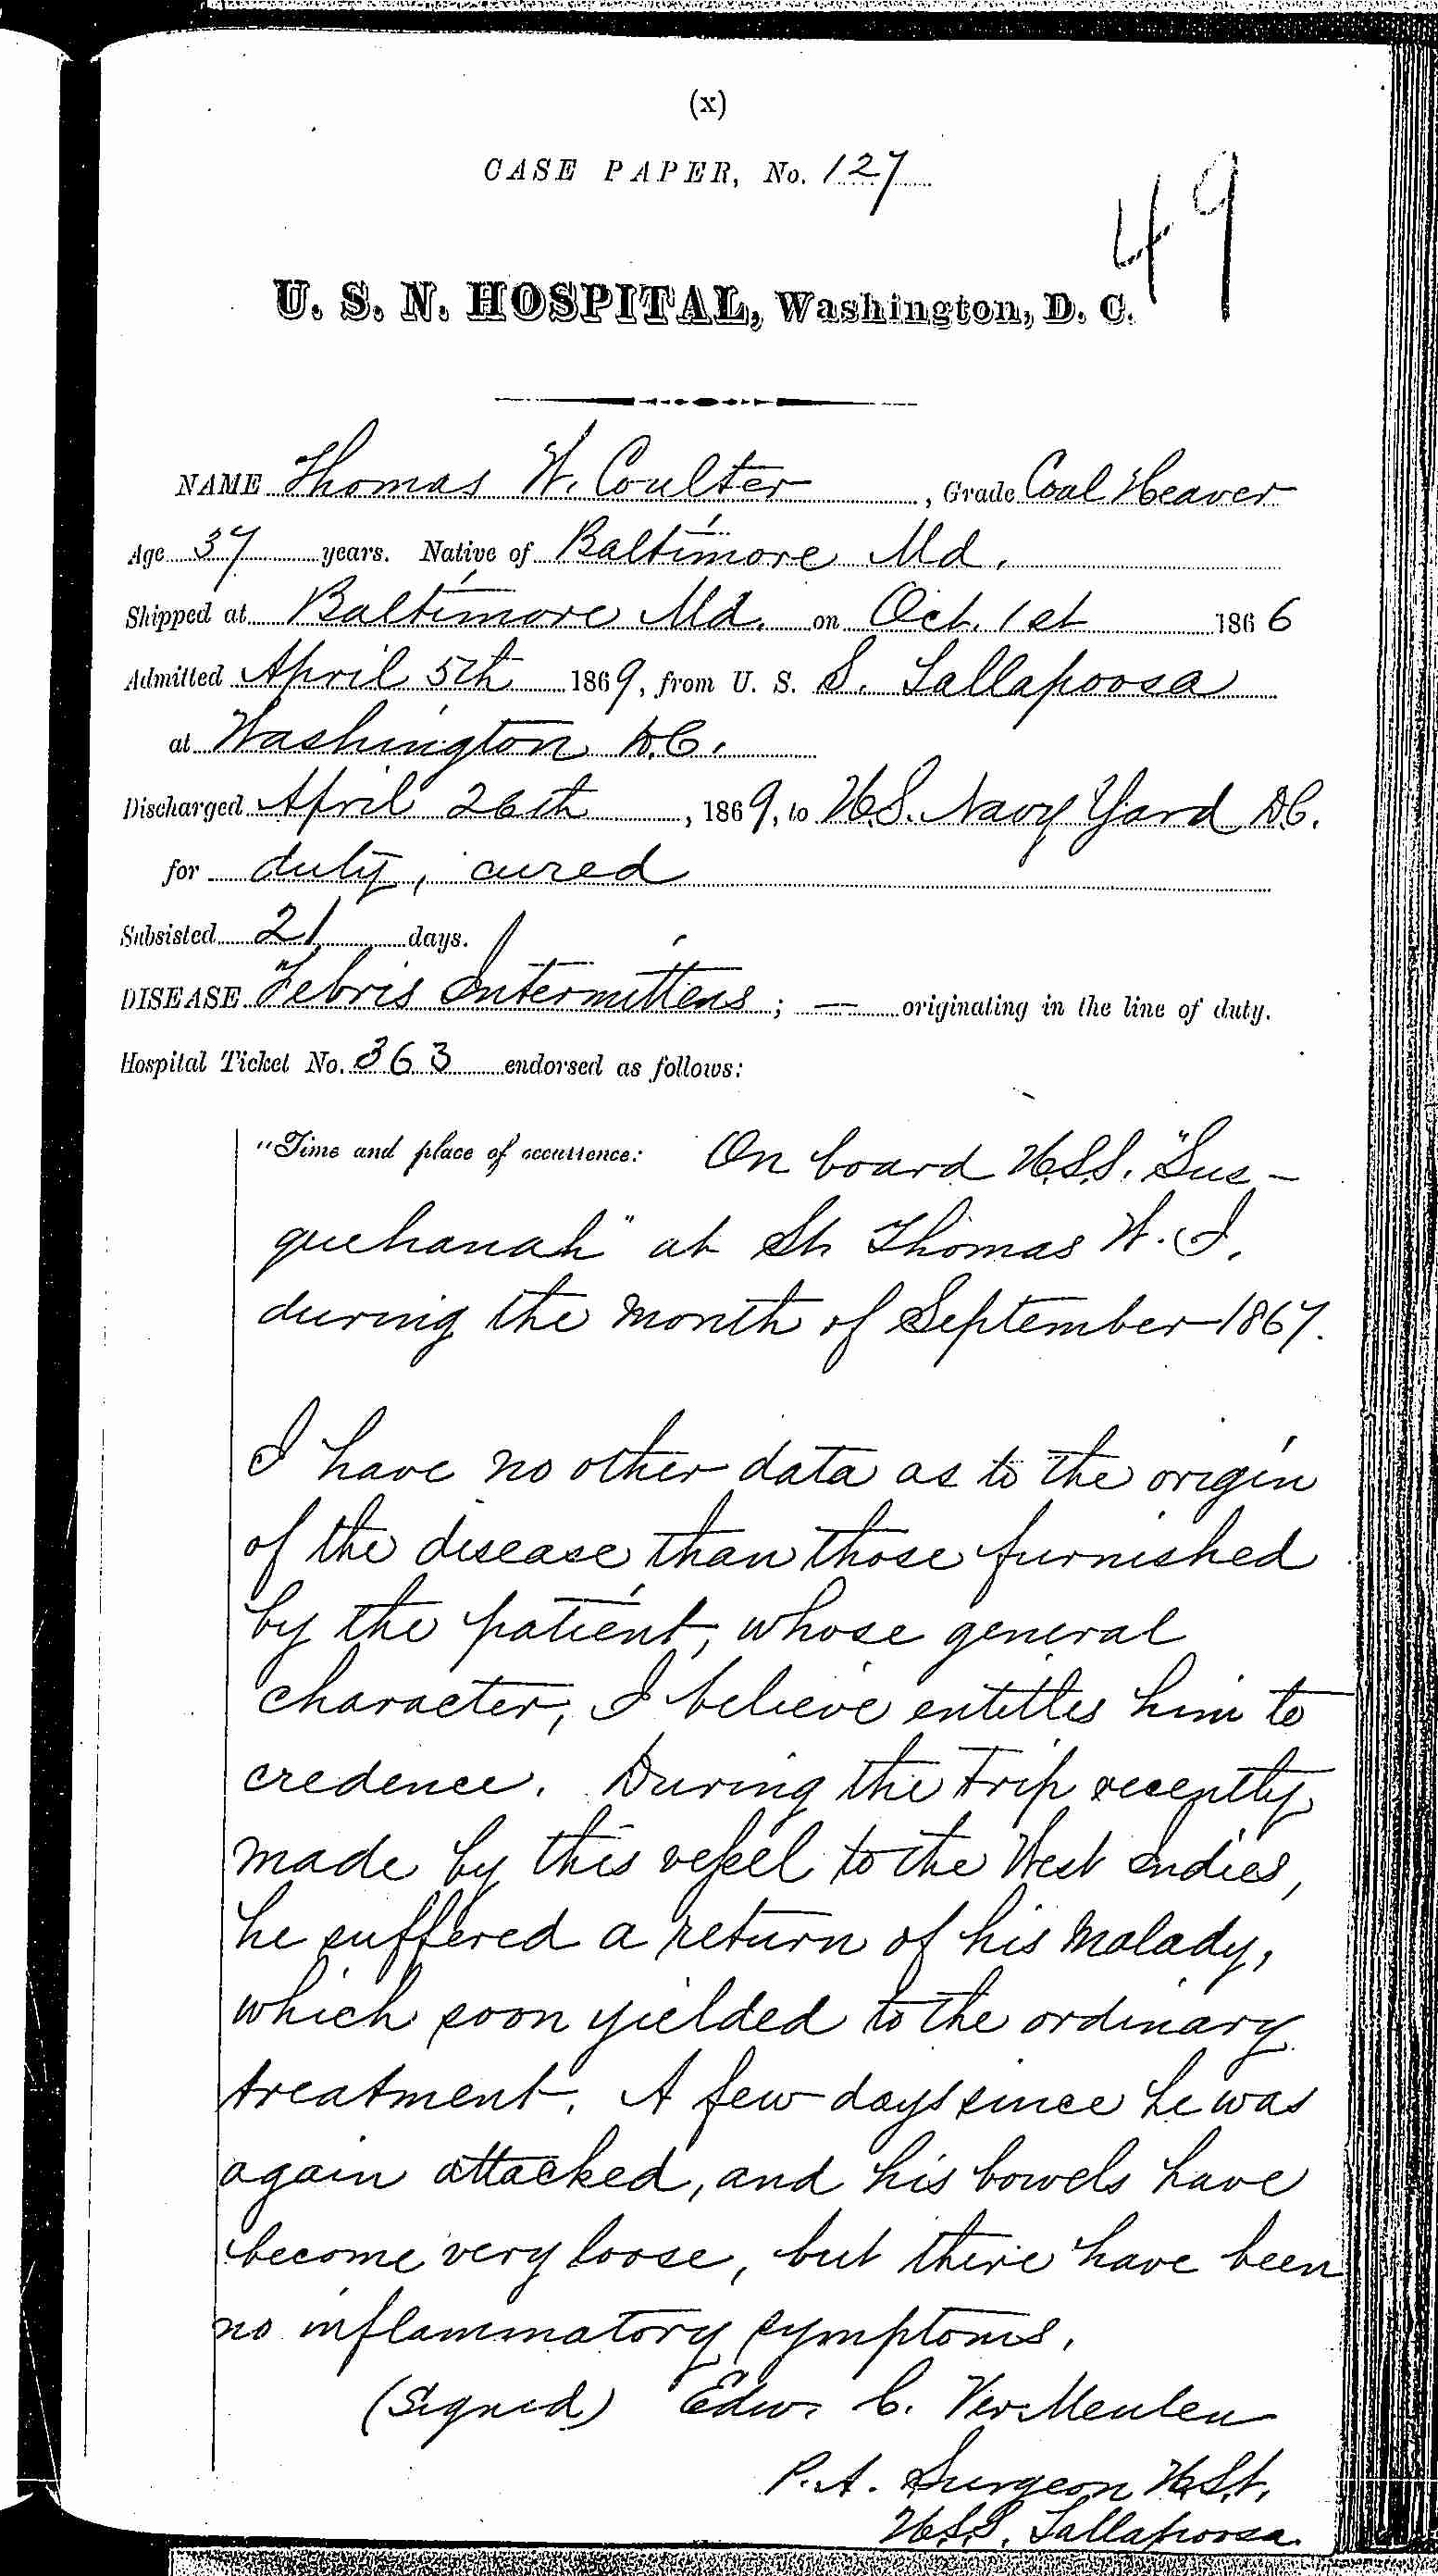 (x)
CASE PAPER, No. 127
49
U. S. N. HOSPITAL, Washington, D. C.
NAME Thomas W. Coulter, Grade Coal Heaver
Age 37 years. Native of Baltimore Md.
Shipped at Baltimore Md. on Oct. 1st 1866
Admitted April 5th 1869, from U. S. S. Tallapoosa
at Washington D.C.
Discharged April 26th, 1869, to U.S. Navy Yard D.C.
for duty, cured
Subsisted 21 days.
DISEASE Febris Intermittens; — originating in the line of duty.
Hospital Ticket No. 363 endorsed as follows:
"Time and place of occurrence: On board U.S.S. "Sus-
quehanah" at St Thomas W. I.
during the month of September 1867.
I have no other data as to the origin
of the disease than those furnished
by the patient, whose general
character, I believe entitles him to
credence. During the trip recently
made by this vessel to the West Indies,
he suffered a return of his malady,
which soon yielded to the ordinary
treatment. A few days since he was
again attacked, and his bowels have
become very loose, but there have been
no inflammatory symptoms.
(Signed) Edw. C. Ver Meulen
P. A. Surgeon U.S.N.
U.S.S. Tallapoosa.